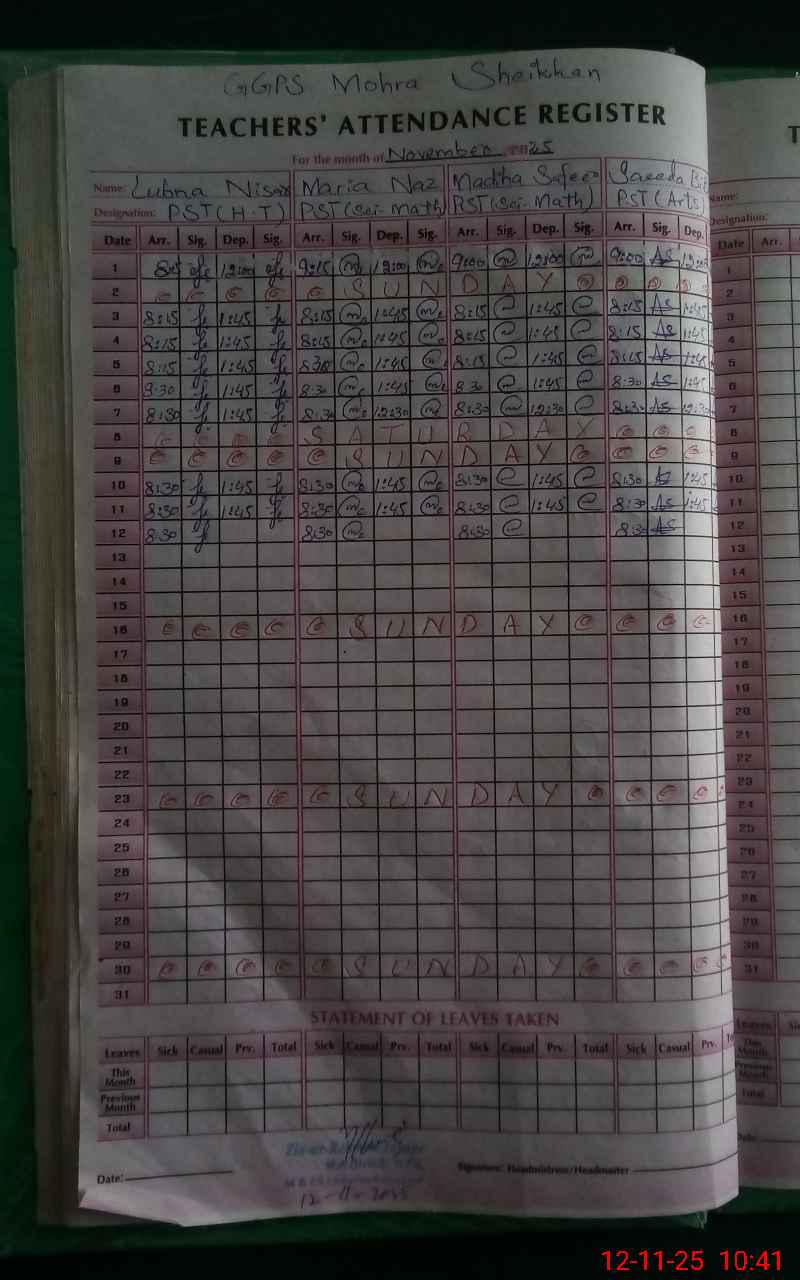 GGPS Mohra Sheikhan
TEACHERS' ATTENDANCE REGISTER
For the month of November 2025
Name: Lubna Nisar Maria Naz Madiha Safeer Saeeda Bi
Designation: PST(H.T) PST(Sci-Math) PST(Sci-Math) PST(Arts)
Date Arr. Sig. Dep. Sig. Arr. Sig. Dep. Sig. Arr. Sig. Dep. Sig. Arr. Sig. Dep.
1 12:00 9:15 12:00 9:00 12:00 9:00
2 SUNDAY
3 8:15 1:45 8:15 1:45 8:15 1:45 8:15 1:45
4 8:15 1:45 8:15 1:45 8:15 1:45 8:15 1:45
5 8:15 1:45 8:30 1:45 8:15 1:45 8:15 1:45
6 1:45 8:30 1:45 8:30 1:45 8:30 1:45
7 8:30 1:45 8:30 12:30 8:30 12:30 8:30 12:30
8 SATURDAY
9 SUNDAY
10 8:30 1:45 8:30 1:45 8:30 1:45 8:30 1:45
11 8:30 1:45 8:30 1:45 8:30 1:45 8:30 1:45
12 8:30 8:30 8:30 8:30
13
14
15
16 SUNDAY
17
18
19
20
21
22
23 SUNDAY
24
25
26
27
28
29
30 SUNDAY
31
STATEMENT OF LEAVES TAKEN
Leaves Sick Casual Prv. Total Sick Casual Prv. Total Sick Casual Prv. Total Sick Casual Prv.
This Month
Previous Month
Total
Date: Signature: Headmistress/Headmaster
12-11-2025
T
Name:
Designation:
Date Arr.
1
2
3
4
5
6
7
8
9
10
11
12
13
14
15
16
17
18
19
20
21
22
23
24
25
26
27
28
29
30
31
Leaves
This Month
Previous Month
Total
12-11-25 10:41